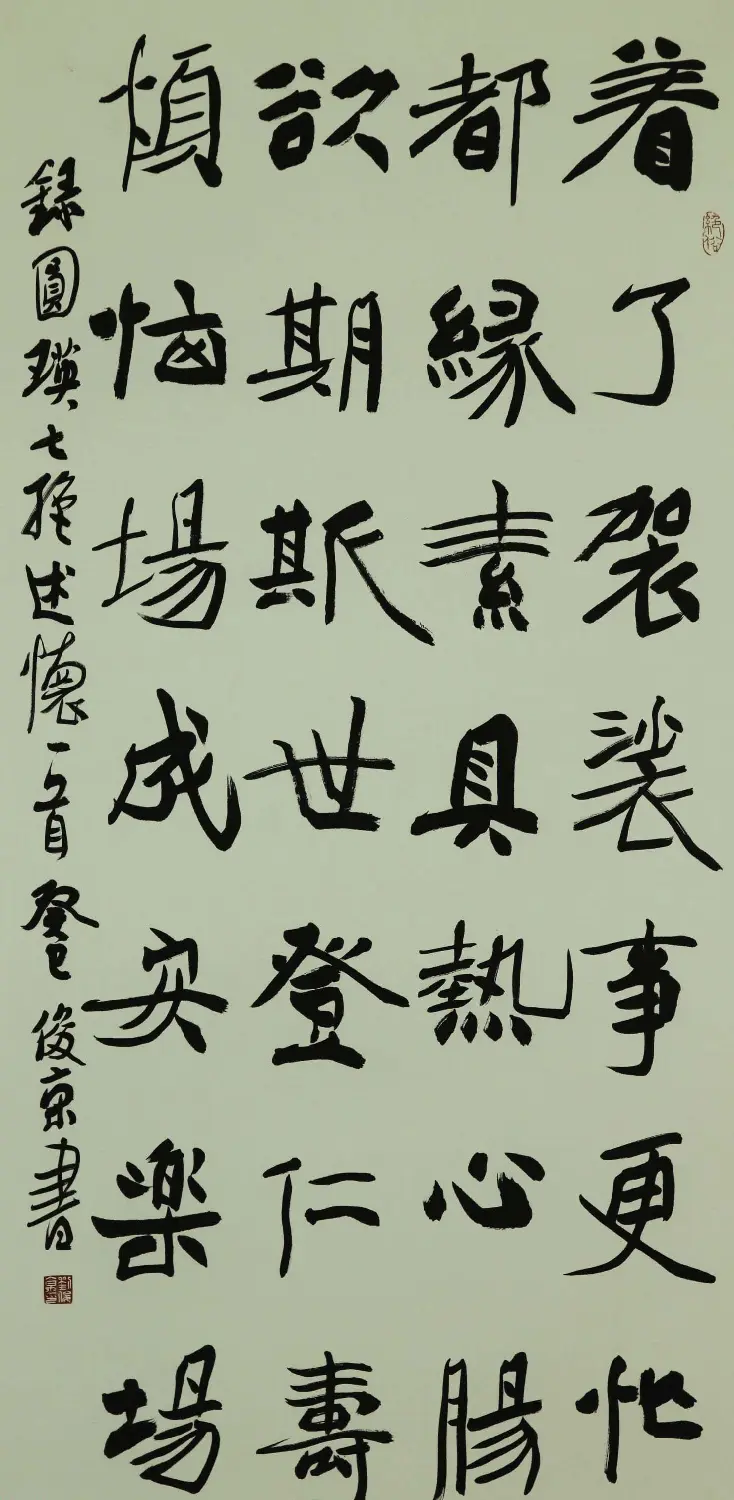 着了袈裟事更忙
都緣素具熱心腸
欲期斯世登仁壽
煩惱場成安樂場
録圓瑛七絕述懷一首癸巳俊京書